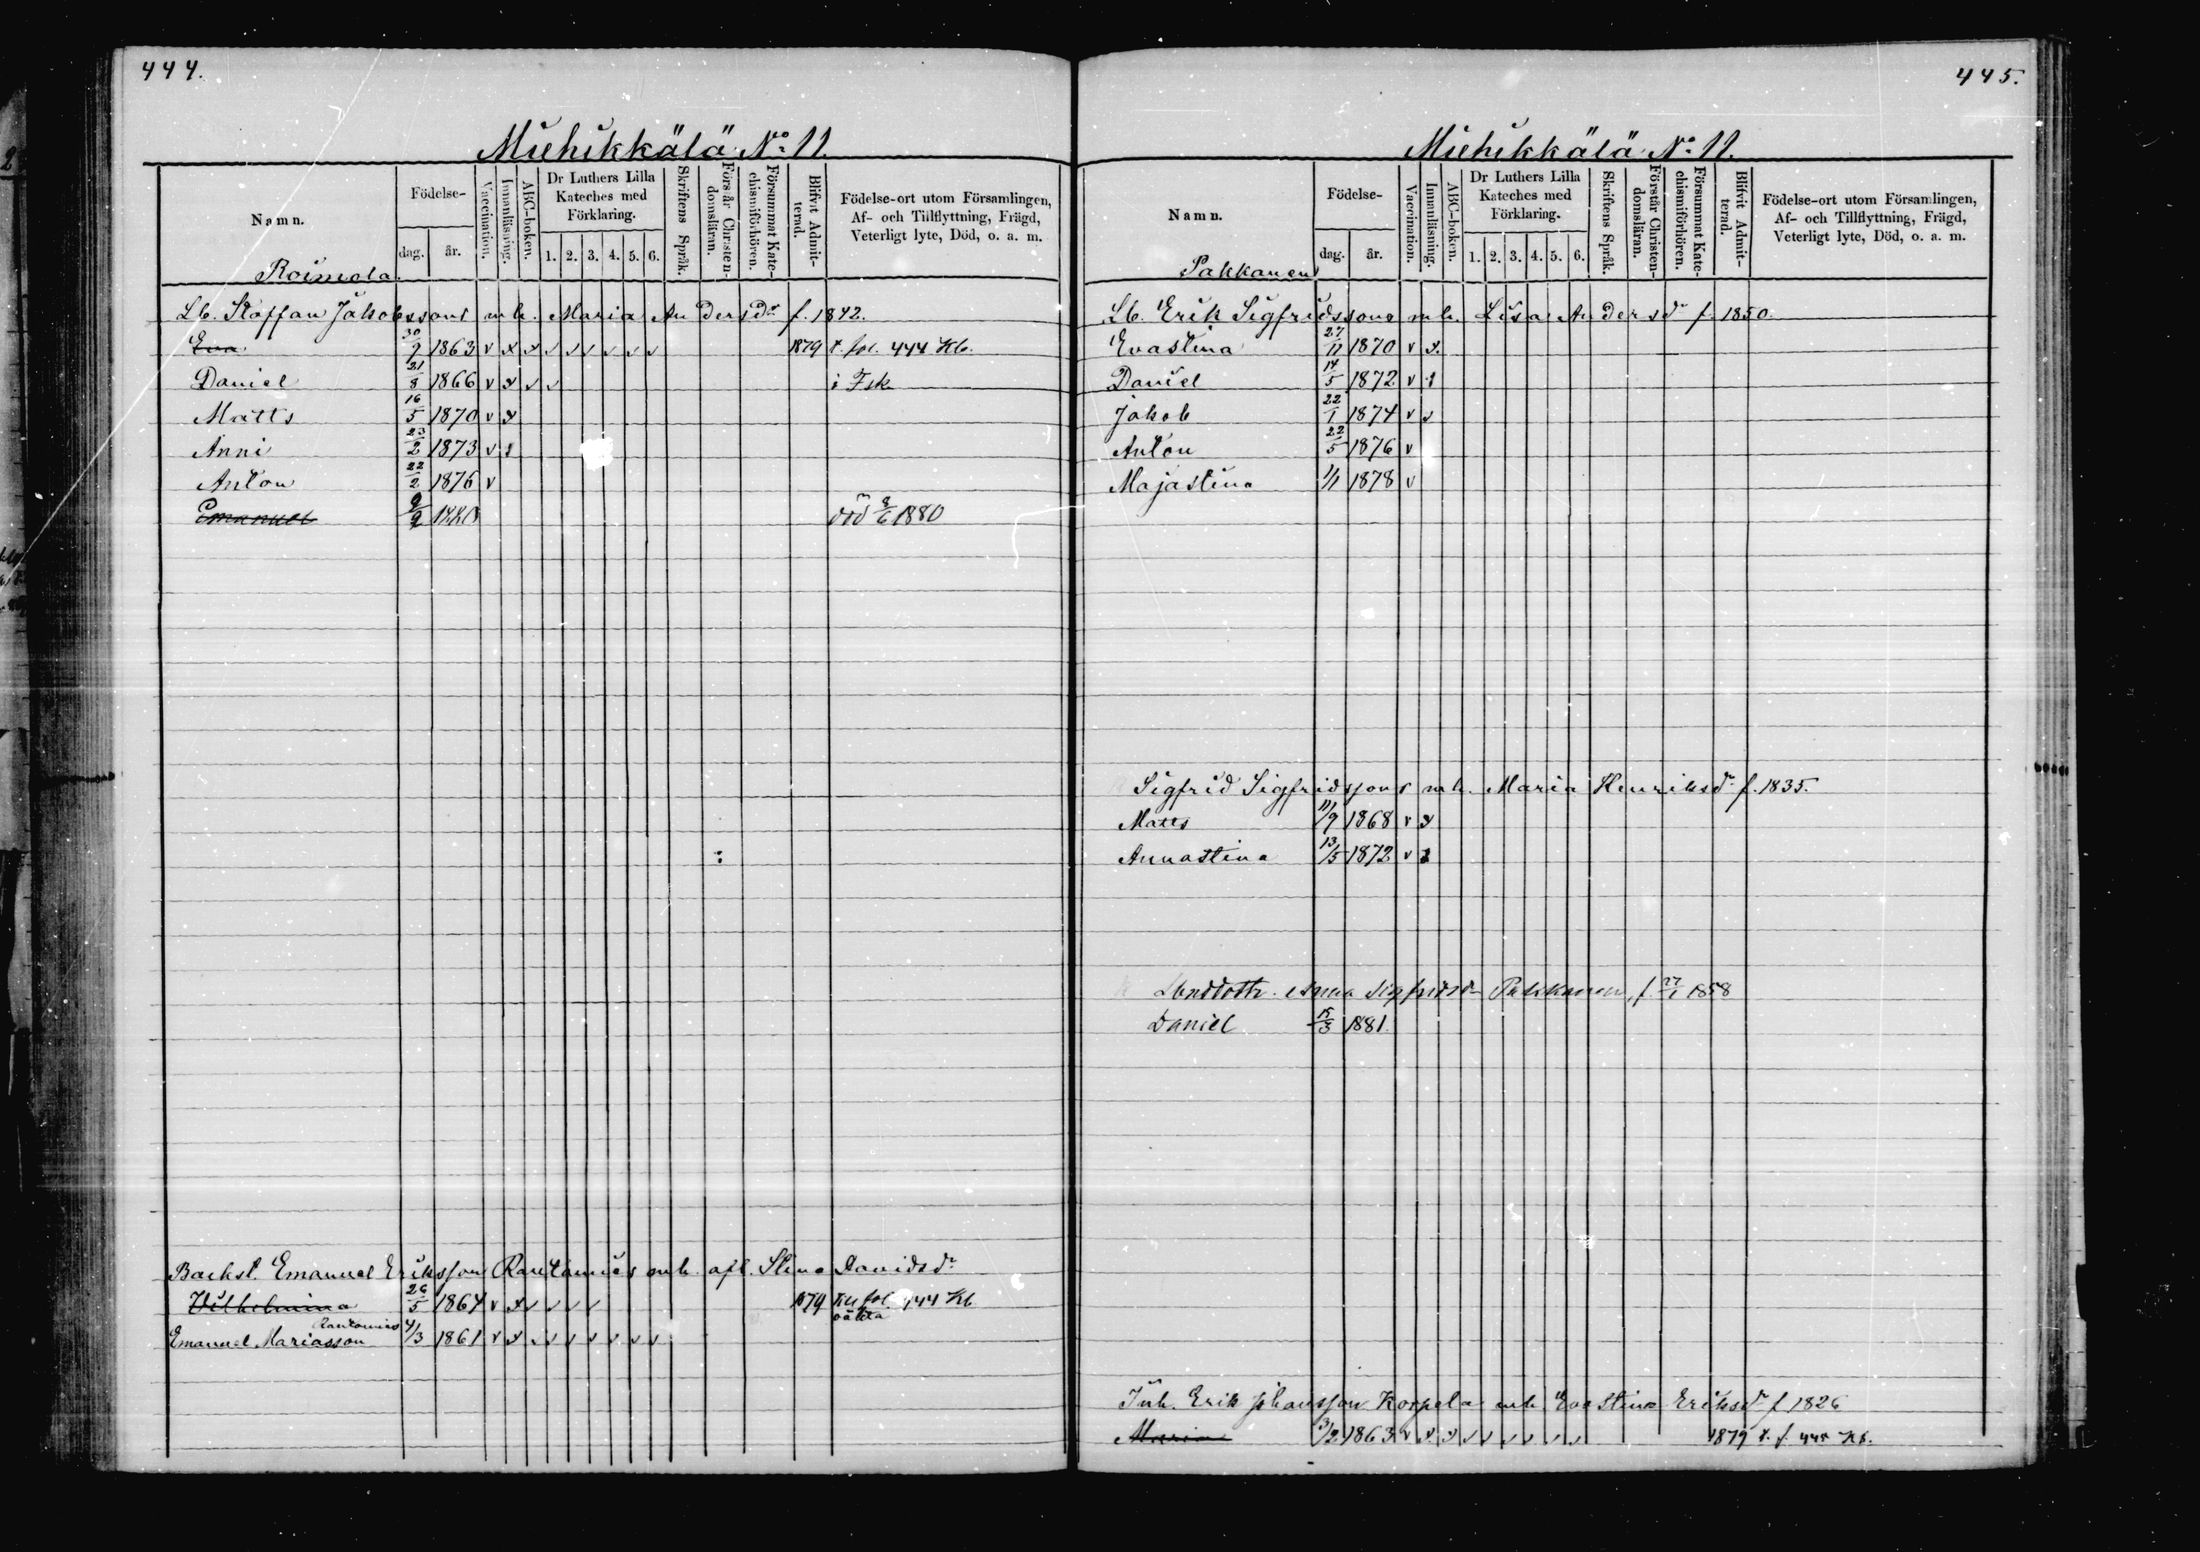 444.
Miehikkälä No 11.
Namn. Födelse- dag. år. Vaccination. Innanläsning. ABC-boken. Dr Luthers Lilla Kateches med Förklaring. 1. 2. 3. 4. 5. 6. Skriftens Språk. Förstår Christendomsläran. Försummat Katechismiförhören. Blifvit Admitterad. Födelse-ort utom Församlingen, Af- och Tillflyttning, Frägd, Veterligt lyte, Död, o. a. m.
Roimola.
Lb. Staffan Jakobssons m h. Maria Andersdr f. 1842.
Eva 30/9 1863 v x x v v v v v v 1879 t. fol. 444 Kb.
Daniel 21/8 1866 v x v v i Fsk
Matts 16/5 1870 v x
Anni 23/2 1873 v
Anton 22/2 1876 v
Emanuel död 8/6 1880
Backst. Emanuel Eriksson Rantamies m h. afl. Stina Davidsdr
Vilhelmina 26/5 1864 v x v v v v 1879 fol. 444 Kb
Rantamies
Emanuel Mariasson 4/3 1861 v x v v v v v v v
445.
Miehikkälä No 11.
Namn. Födelse- dag. år. Vaccination. Innanläsning. ABC-boken. Dr Luthers Lilla Kateches med Förklaring. 1. 2. 3. 4. 5. 6. Skriftens Språk. Förstår Christendomsläran. Försummat Katechismiförhören. Blifvit Admitterad. Födelse-ort utom Församlingen, Af- och Tillflyttning, Frägd, Veterligt lyte, Död, o. a. m.
Pakkanen
Lb. Erik Sigfridssons m h. Lisa Andersdr f. 1850.
Evastina 27/11 1870 v x
Daniel 14/5 1872 v
Jakob 22/1 1874 v v
Anton 22/5 1876 v
Majastina 1/1 1878 v
Sigfrid Sigfridssons m h. Maria Henriksdr f. 1835.
Matts 11/9 1868 v x
Annastina 13/5 1872 v
Anna Sigfridsdr Pakkanen, f. 27/1 1858
Daniel 15/3 1881.
Inh. Erik Johansson Korpela m h. Evastina Eriksdr f 1826
Maria 3/2 1863 v x x v v v v v v 1879 t. f. 445 Kb.